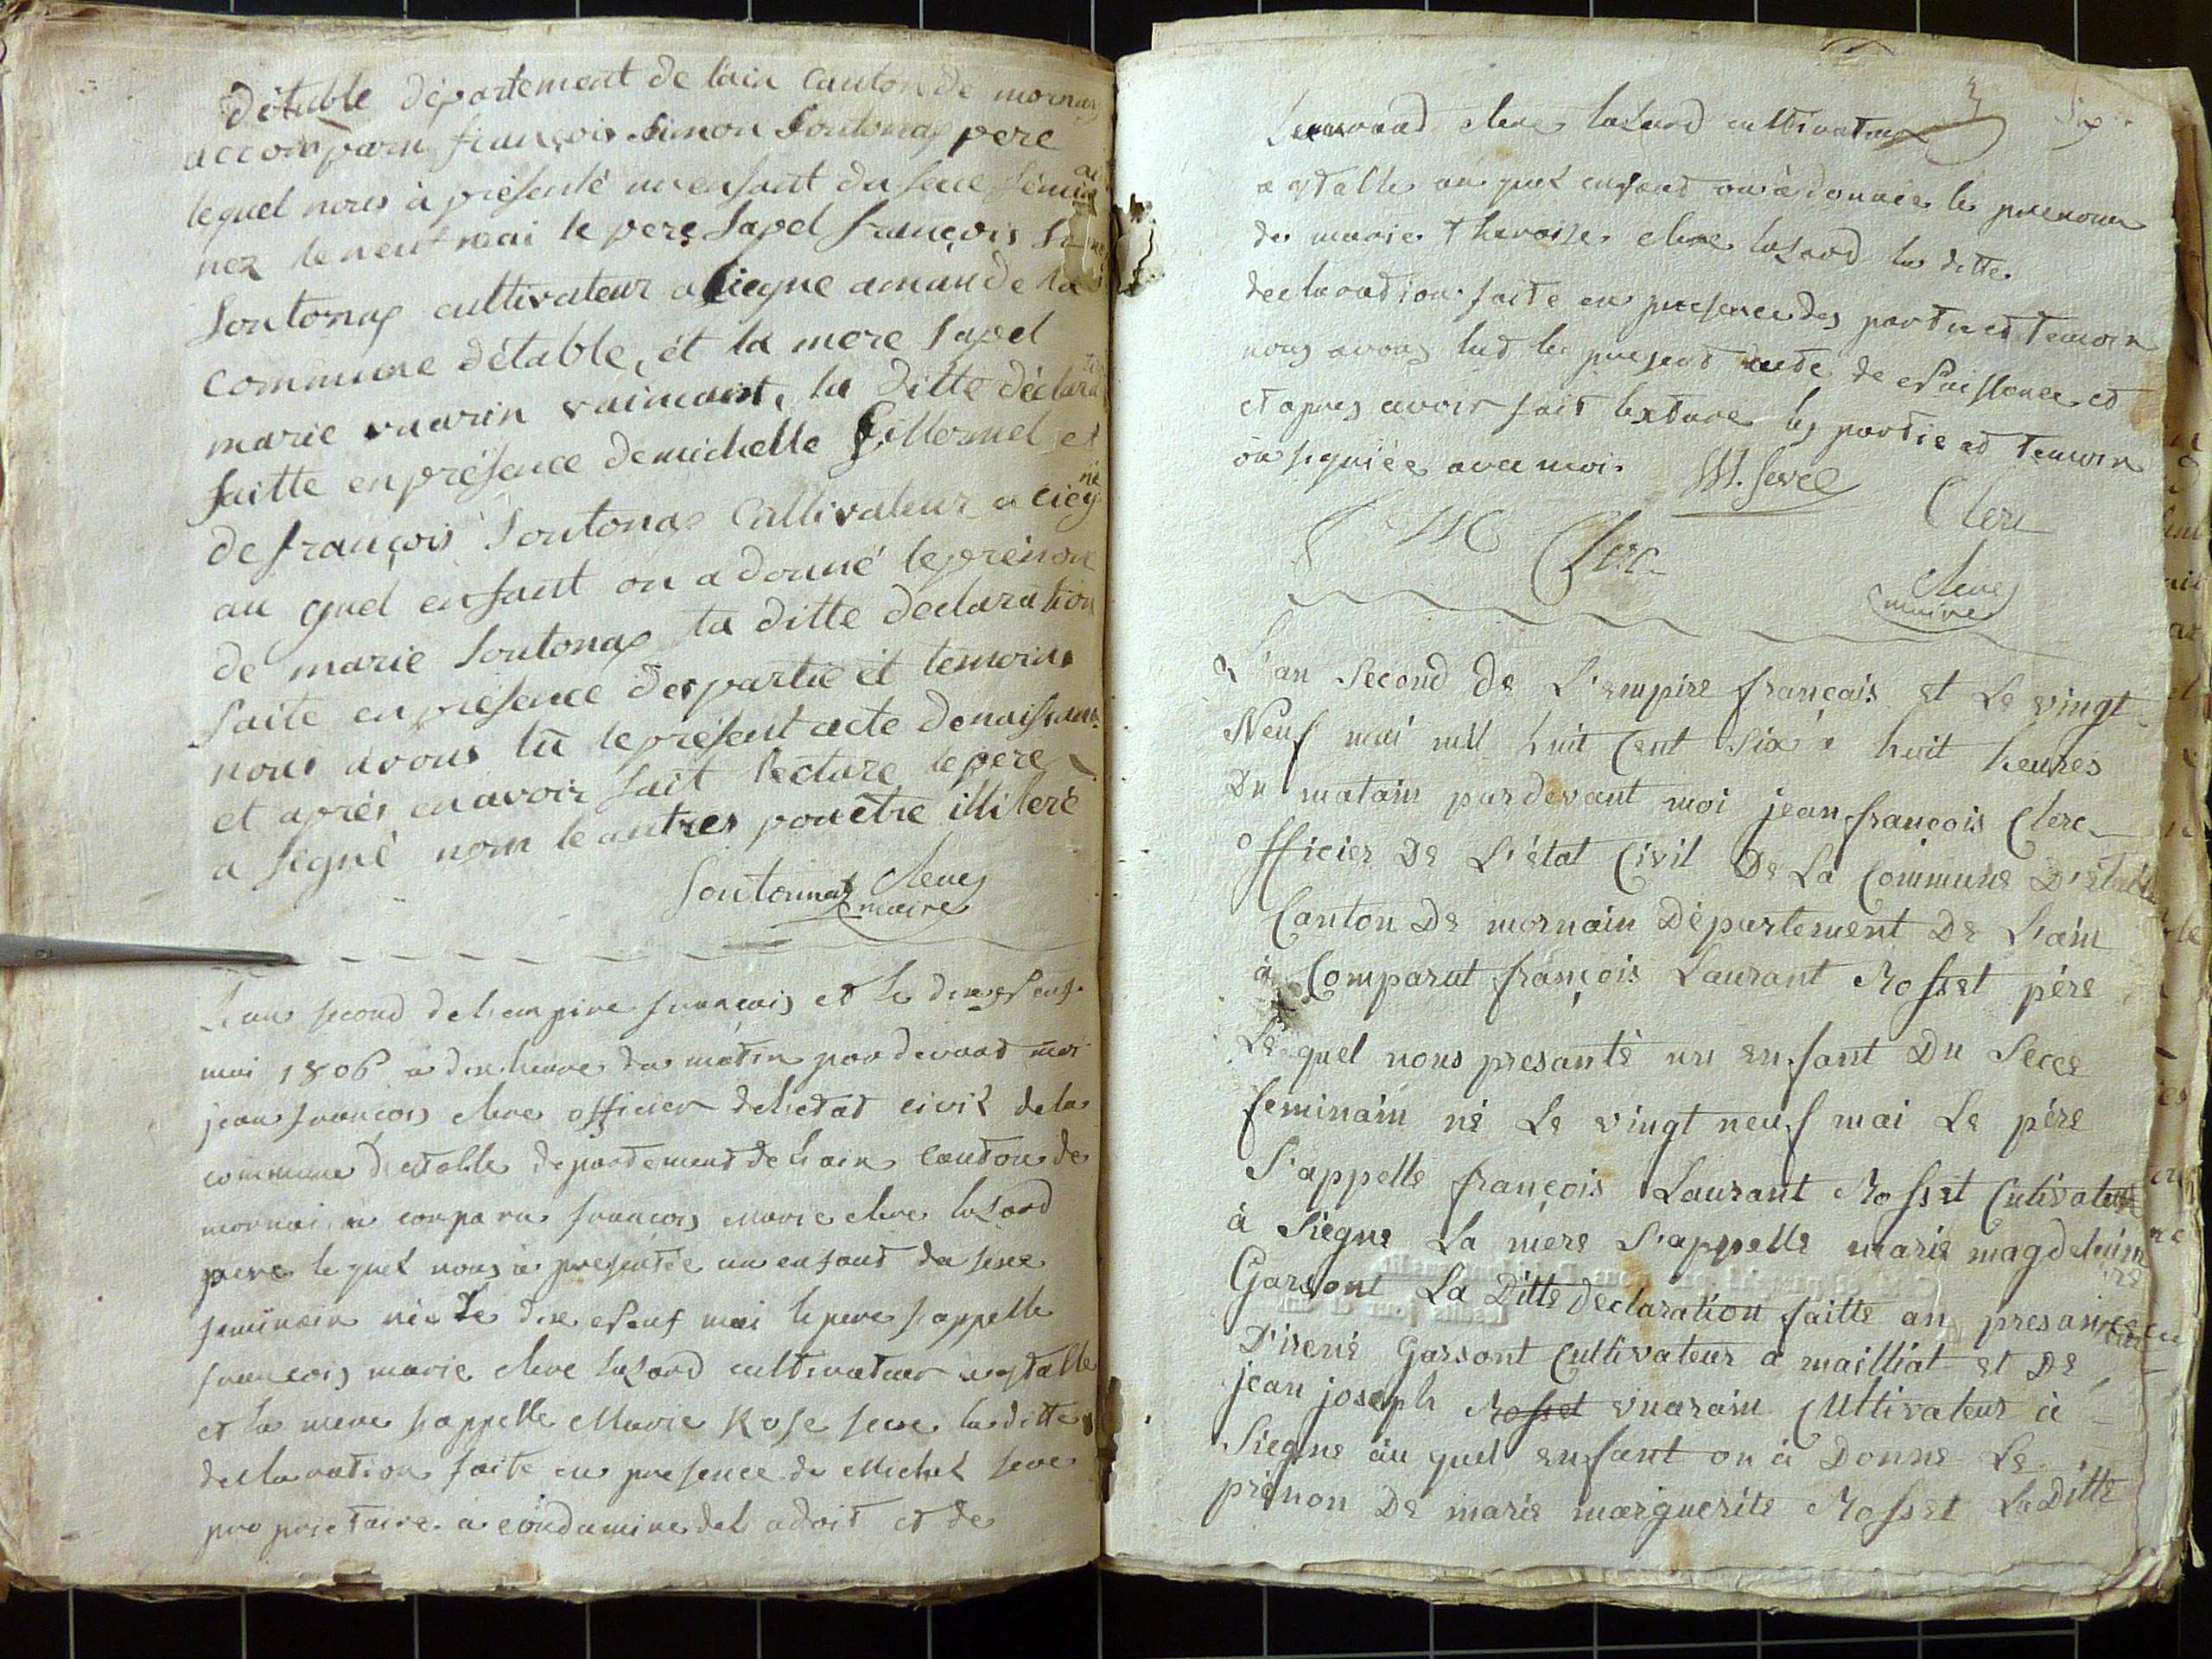 détable département de lain Canton de mornay
a comparu françois Simon Soutonax pere
lequel nous à présenté un enfant du sexe
nez le neuf mai le pere sapel françois
Soutonax cultivateur a Ciegne amau de la
commune détable, et la mere sapel
marie vuarin vaimant, la ditte déclara
faitte en présence de michelle Gillermel et
de françois Soutonax Cultivateur a cieg
ne
au quel enfant on a donné le prénom
de marie Soutonax la ditte declaration
faite en présence des partie et temoins
nous avons lu le présent acte de naissan
et après en avoir fait lecture le pere
a segné nom le autres pou être illiteré
Soutonnax Clerc
maire
L'an second de l'empire français et le dix neuf
mai 1806 a dix heure du matin par devant moi
jean françois clerc officier de l'etat civil de la
commune d'estable departement de l'ain canton de
mornai a conparu françois marie clerc lazard
pere le quel nous a presentée un enfant du sexe
feminain née le dix neuf mai le pere s'appelle
françois marie clerc lazard cultivateur a estable
et la mere s'appelle Marie Rose seve la ditte
declaration faite en presence de Michel seve
proprietaire a condamine de l adoit et de
clerc lazard cultivateur
a estable au quel enfant on à donnée le prenom
de marie theraise clerc lazard la ditte
declaration faite en presence des partie et temoin
nous avons lut le present acte de naissance et
et apres avoir fait lexture les partie et temoin
on signiée avec moi M. Seve
M Clerc Clerc
Clerc
maire
L'an Second de L'empire français et Le vingt
Neuf mai mil huit Cent Six à huit heures
Du matain pardevant moi jean françois Clerc
officier De L'état Civil De La Commune D'étable
Canton De mornain Département De L'ain
à Comparut françois Laurant Rosset pére
Le quel nous presanté un enfant Du Secce
feminain né Le vingt neuf mai Le pére
S'appelle françois Laurant Rosset Cutivateur
à Siegne La mére S'appelle marie magdelein
Garsont La Ditte declaration faitte an presance
D'irené Garsont Cultivateur a mailliat et De
jean joseph Rosset vuarain Cultivateur à
Siegne au quel enfant on à Donné Le
prénon De marie marguerite Rosset La Ditte